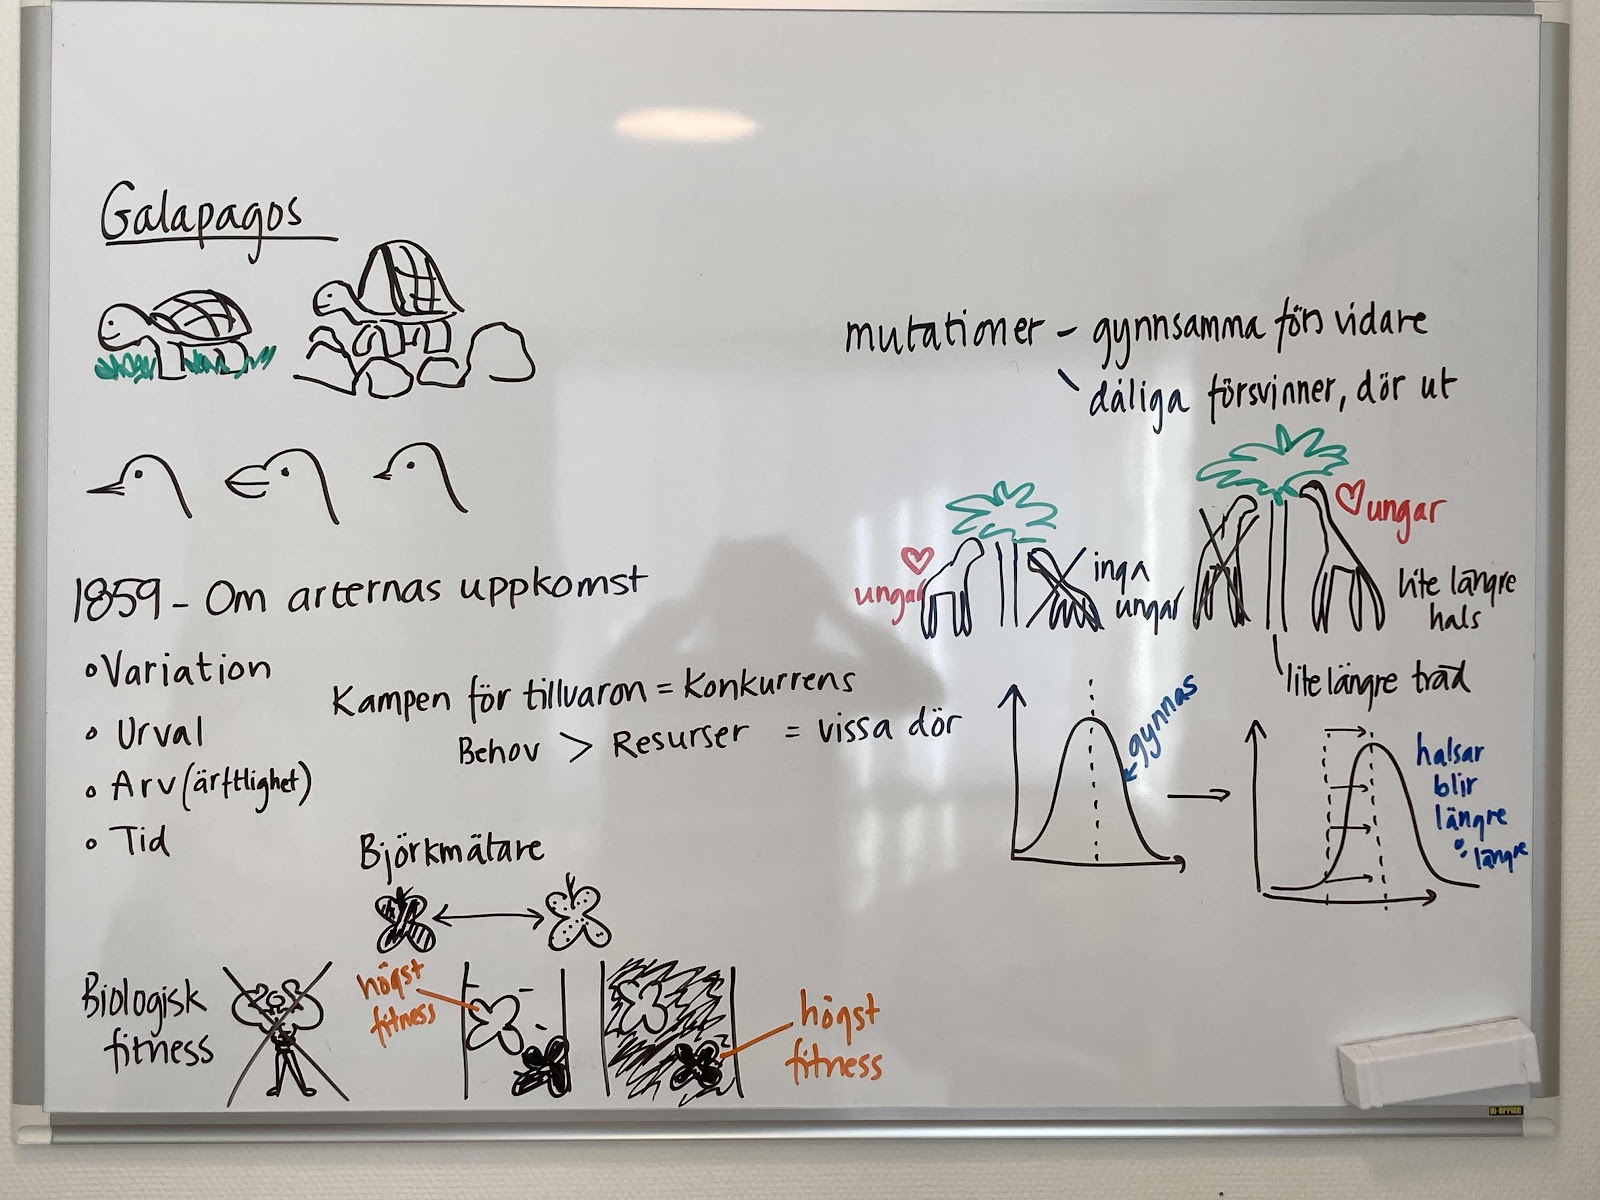 Galapagos
1859 - Om arternas uppkomst
• Variation
• Urval
• Arv (ärftlighet)
• Tid
Kampen för tillvaron = Konkurrens
Behov > Resurser = vissa dör
Björkmätare
Biologisk
fitness
högst
fitness
högst
fitness
mutationer - gynnsamma förs vidare
dåliga försvinner, dör ut
ungar
inga
ungar
ungar
lite längre
hals
lite längre träd
gynnas
halsar
blir
längre
längre
Bi-OFFICE